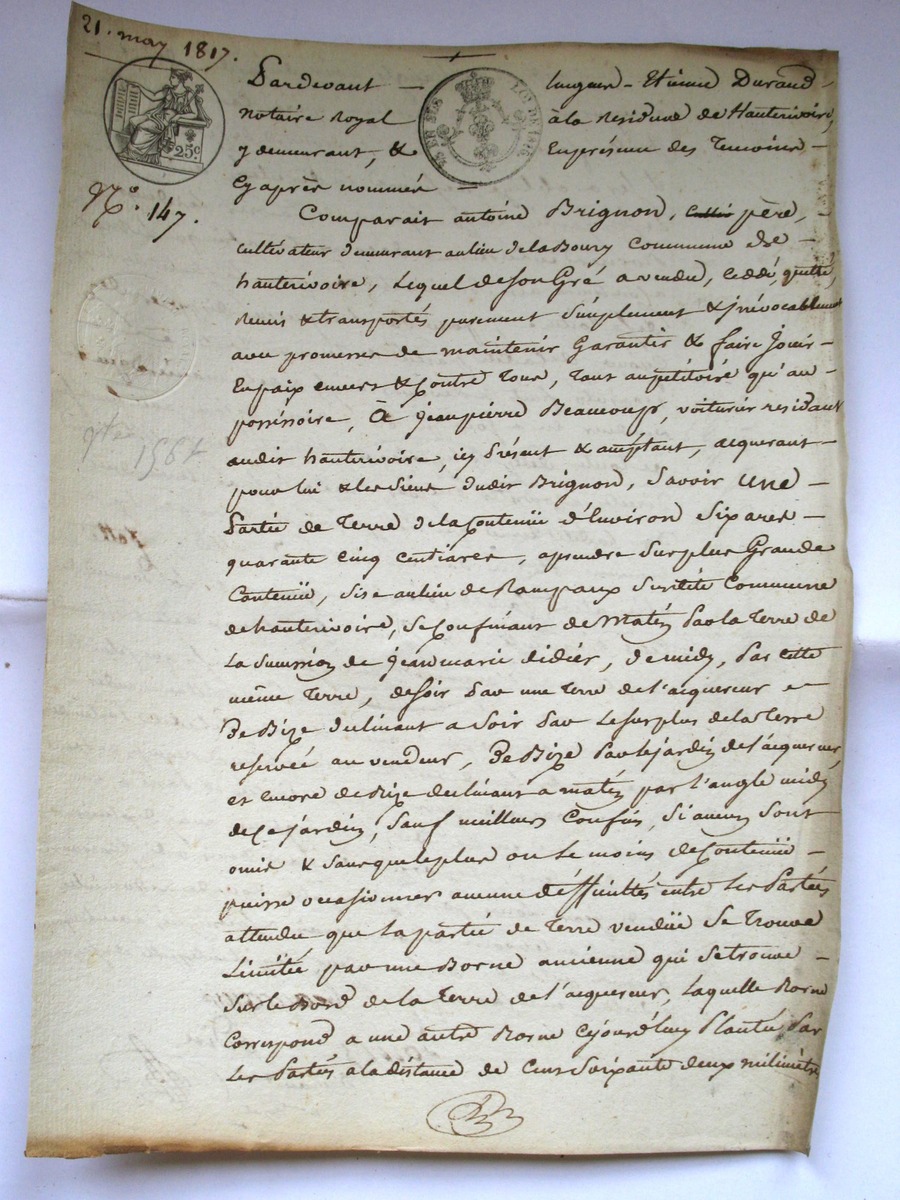 21. may 1817.
25c
N.º 147.
Pardevant — Etienne Durand —
notaire Royal à la Residence de Hauterivoire,
y demeurant, & En présence des Temoins —
Cy après nommés —
Comparait antoine Brignon, père, —
cultivateur demeurant au lieu de la Boury Commune de —
hauterivoire, Lequel de Son Gré a vendu, Ceddé, quitté,
Remis & transportés purement Simplement & jrrévocablement
avec promesse de maintenir Garantir & faire Jouir —
En paix envers & Contre Tous, tant au pétitoire qu'au —
possessoire, À jean pierre Beaucoup, voiturier residant
audit hauterivoire, icy Présent & acceptant, acquerant —
pour lui & les Siens dudit Brignon, Savoir une —
Partie de Terre de la Contenüe d'Environ Six ares —
quarante cinq centiares, aprendre Sur plus Grande
Contenüe, Sise au lieu de Rampaux Susdite Commune
de hauterivoire, Se Confinant de Matin Par la Terre de
La Succession de jean marie didier, de midy, Par cette
même Terre, de Soir Par une terre de l'acquereur et
De Bize declinant a Soir Par Le Surplus de la Terre
reservée au vendeur, De Bize Par le jardin de l'acquereur,
et encore de Bize declinant a matin par l'angle midy
de Ce jardin, Sauf meilleurs Confins, Si aucuns Sont
omis & Sans que le plus ou le moins de Contenüe —
puisse occasionner aucune difficultés entre Les Parties
attendu que La partie de Terre vendüe Se Trouve
Limitée par une Borne ancienne qui Se trouve —
Sur le Bord de la Terre de l'acquereur, Laquelle Borne
Correspond a une autre Borne Cejourd'huy Plantée Par
Les Parties a la distance de Cent Soixante deux milimètres